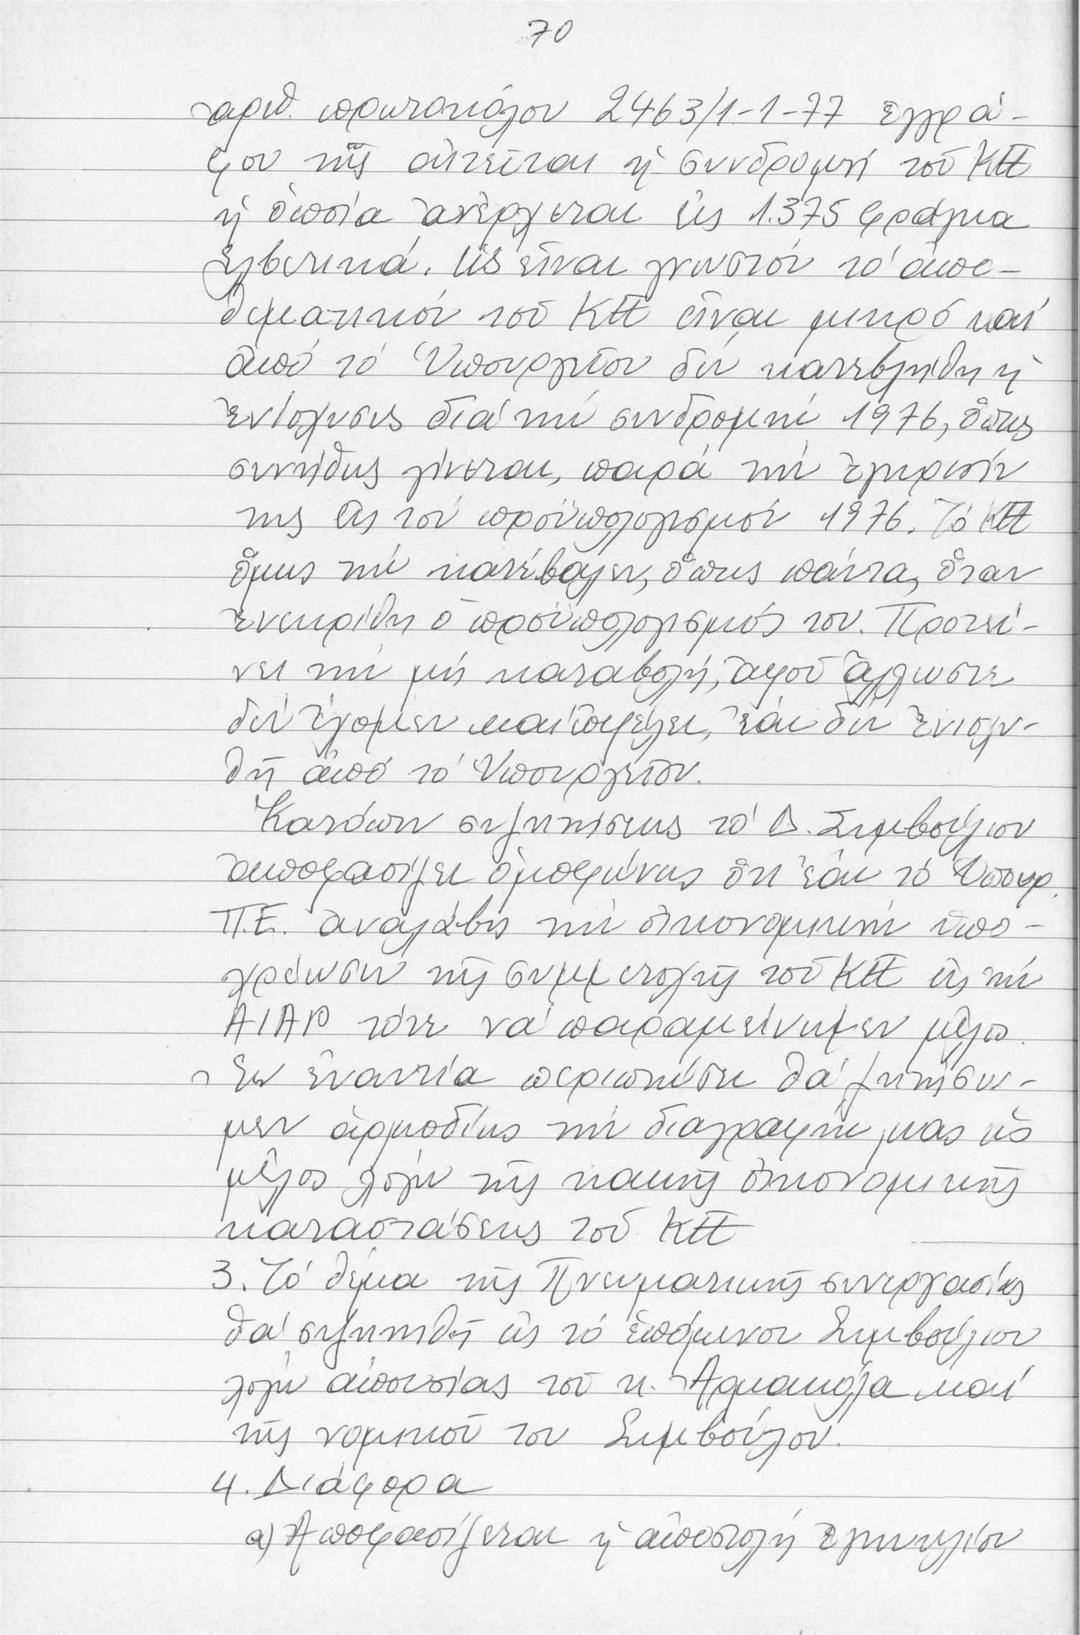 70
ἀριθ. πρωτοκόλου 2463/1-1-77 ἐγγρά-
φου της αἰτεῖται ἡ συνδρομή τοῦ ΚΠ
ἡ ὁποία ἀνέρχεται εἰς 1.375 φράγκα
Ἑλβετικά. Ὡς εἶναι γνωστόν τό ἀπο-
θεματικόν τοῦ ΚΠ εἶναι μικρό καί
ἀπό τό Ὑπουργεῖον δέν κατεβλήθη ἡ
ἐνίσχυσις διά τήν συνδρομήν 1976, ὅπως
συνήθως γίνεται, παρά τήν ἔγκρισίν
της εἰς τόν προϋπολογισμόν 1976. Τό ΚΠ
ὅμως τήν κατέβαλεν, ὅπως πάντα, ὅταν
ἐνεκρίθη ὁ προϋπολογισμός του. Προτεί-
νει τήν μή καταβολή, ἀφοῦ ἄλλωστε
δέν ἔχομεν καί ὀφέλη, ἐάν δέν ἐνισχυ-
θῆ ἀπό τό Ὑπουργεῖον.
Κατόπιν συζητήσεως τό Δ. Συμβούλιον
ἀποφασίζει ὁμοφώνως ὅτι ἐάν τό Ὑπουρ.
Π.Ε. ἀναλάβη τήν οἰκονομικήν ὑπο-
χρέωσιν τῆς συμμετοχῆς τοῦ ΚΠ εἰς τήν
AIAP τότε νά παραμείνωμεν μέλος.
Ἐν ἐναντία περιπτώσει θά ζητήσω-
μεν ἁρμοδίως τήν διαγραφήν μας ὡς
μέλος λόγω τῆς κακῆς οἰκονομικῆς
καταστάσεως τοῦ ΚΠ
3. Τό θέμα τῆς Πνευματικῆς συνεργασίας
θά συζητηθῆ εἰς τό ἑπόμενον Συμβούλιον
λόγω ἀπουσίας τοῦ κ. καί
τῆς νομικοῦ του Συμβούλου.
4. Διάφορα
α) Ἀποφασίζεται ἡ ἀποστολή ἐγκυκλίου